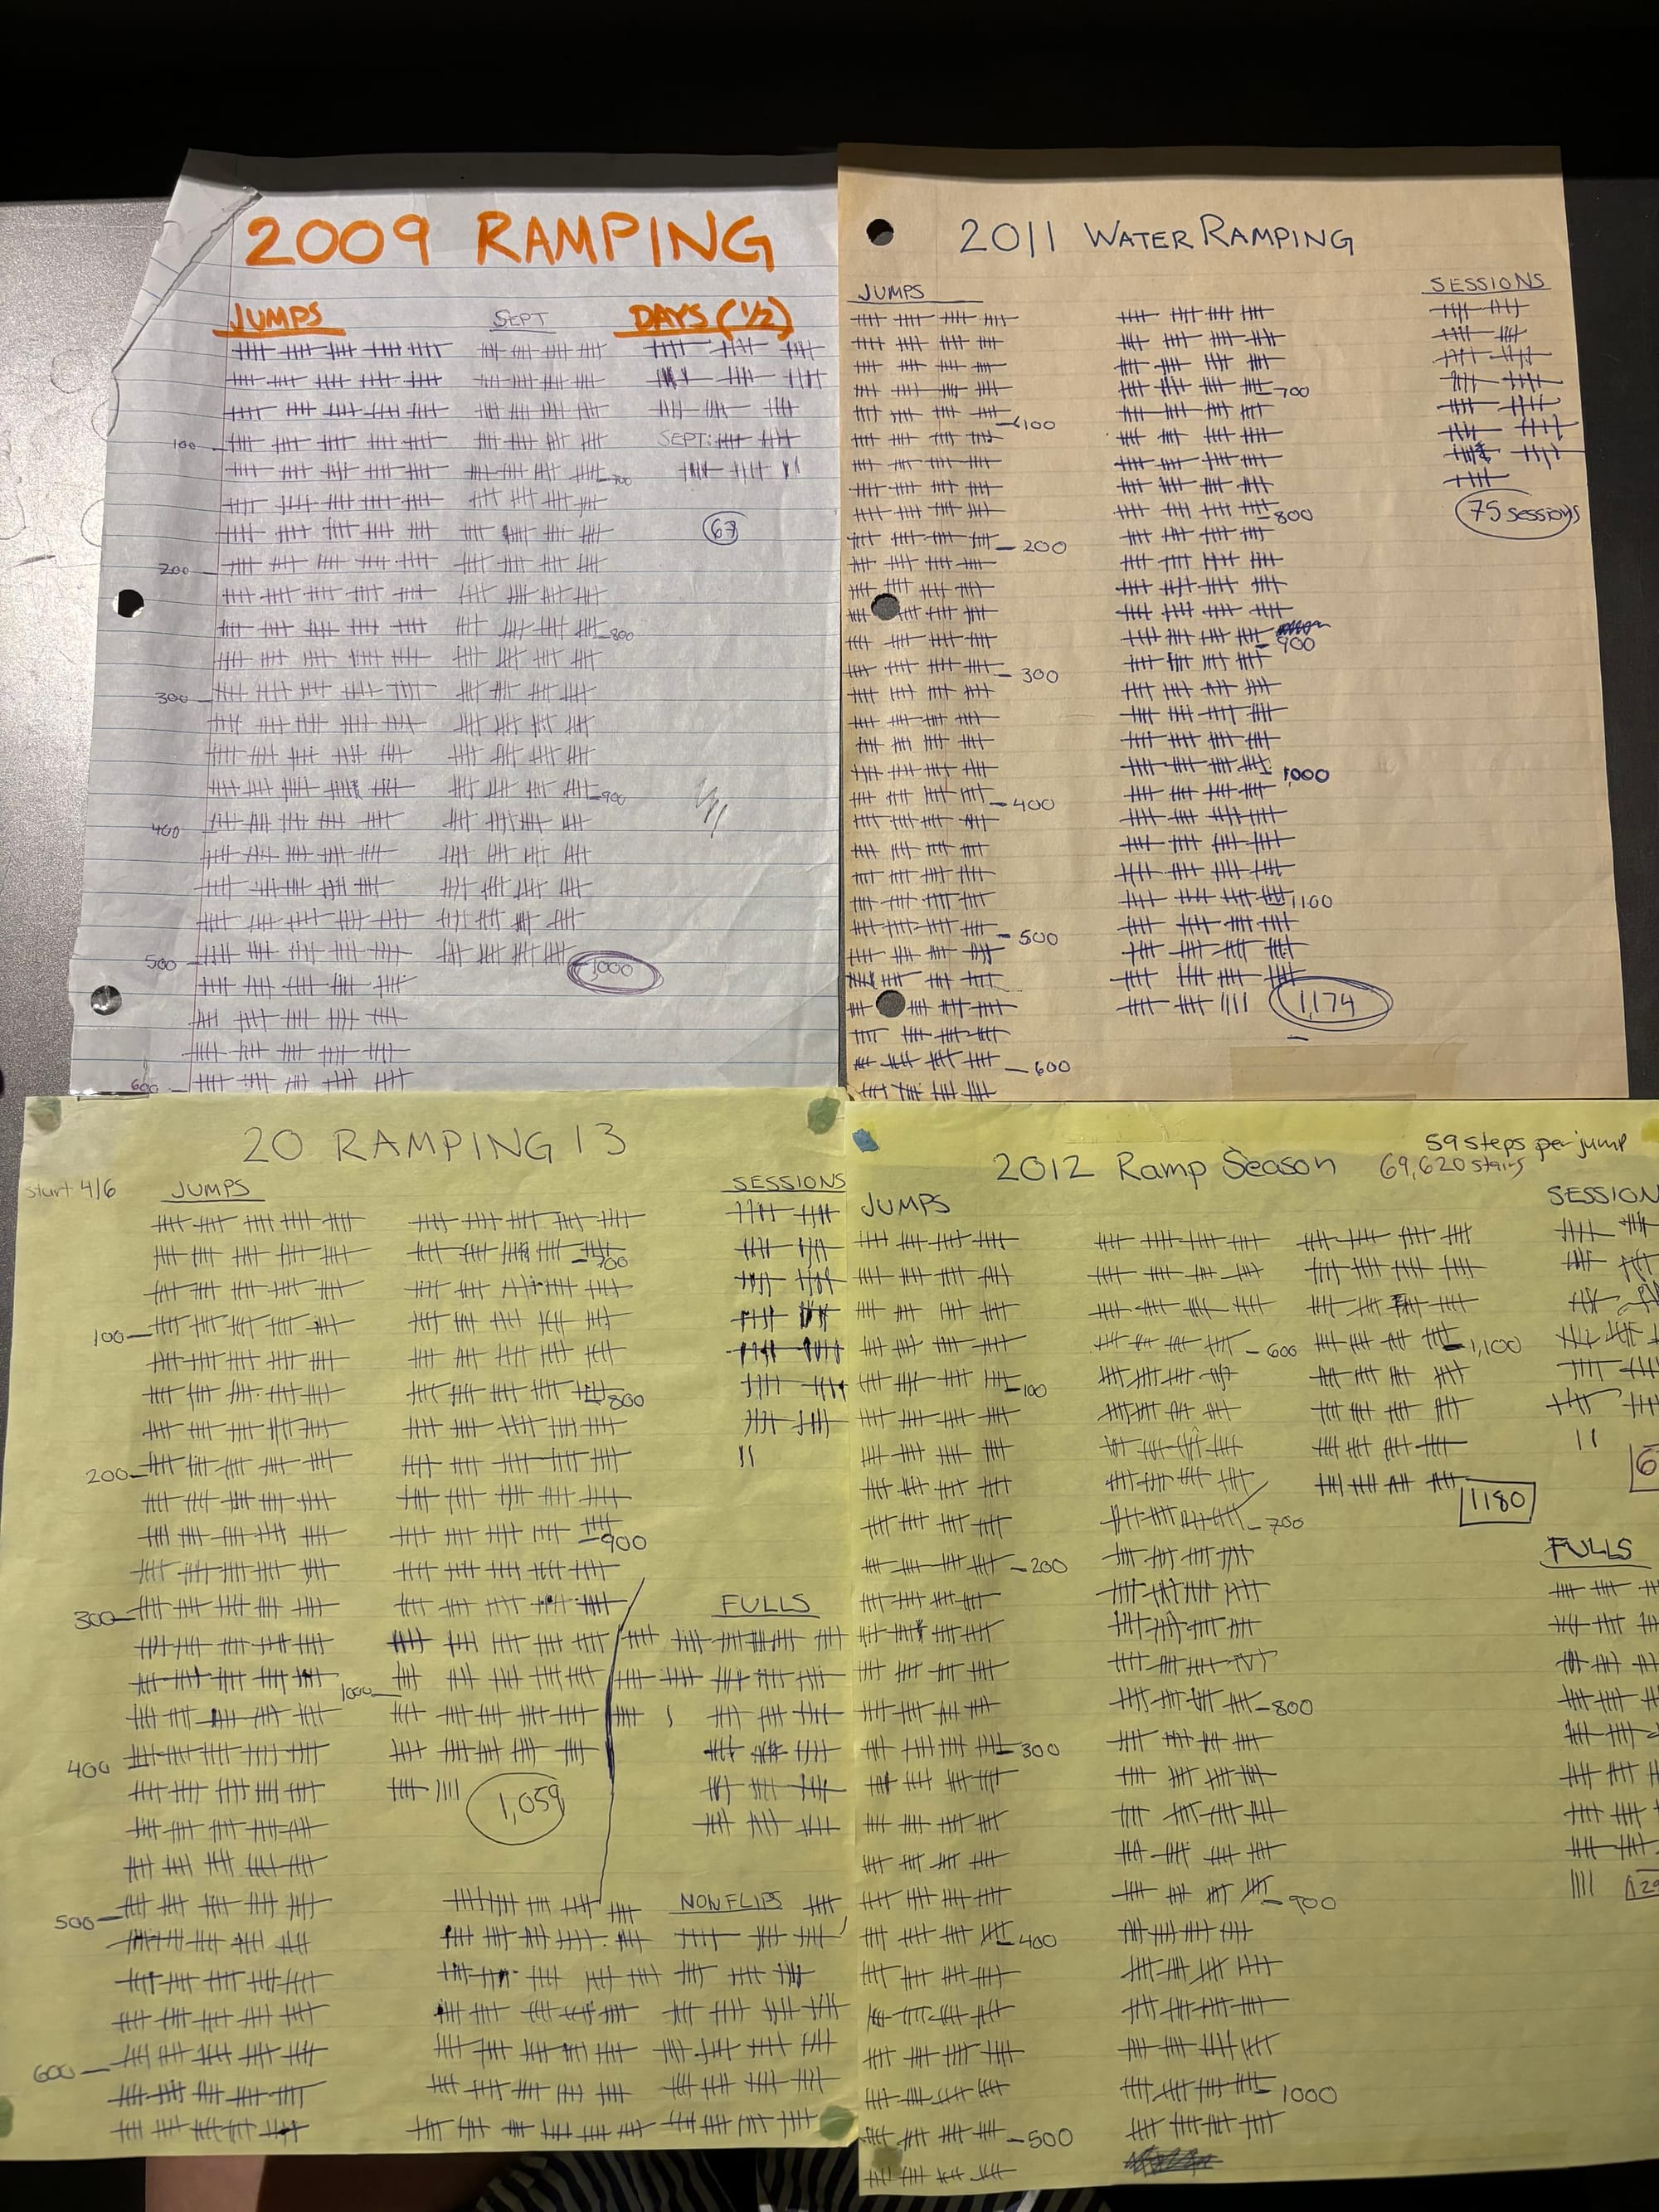 2009 RAMPING
JUMPS
SEPT
DAYS (1/2)
100
SEPT:
700
67
200
800
300
900
400
500
1000
600
2011 WATER RAMPING
JUMPS
SESSIONS
700
100
75 sessions
800
200
900
300
1000
400
1100
500
1,174
600
20 RAMPING 13
start 4/6
JUMPS
SESSIONS
700
100
800
200
900
300
FULLS
1000
400
1,059
500
NON FLIPS
600
59 steps per jump
2012 Ramp Season
69,620 stairs
JUMPS
SESSION
600
1,100
100
1180
700
200
FULLS
800
300
900
400
1000
500